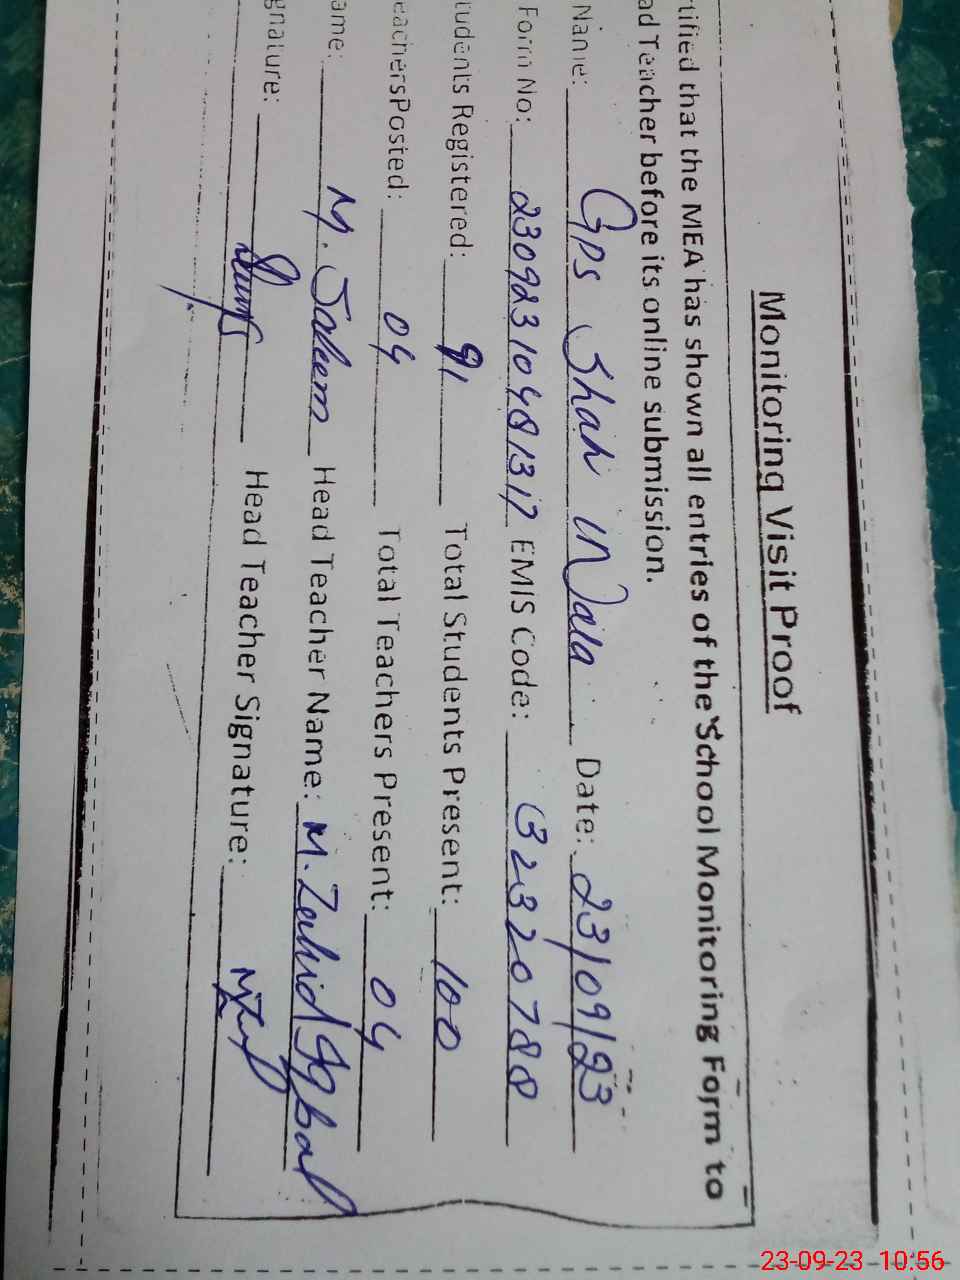 Monitoring Visit Proof
rtified that the MEA has shown all entries of the School Monitoring Form to
ad Teacher before its online submission.
Name: Gps Shah Wala Date: 23/09/23
Form No: 23092310481317 EMIS Code: 32320788
tudents Registered: 91 Total Students Present: 100
eachersPosted: 04 Total Teachers Present: 04
ame: M. Saleem Head Teacher Name: M. Zahid Iqbal
gnature: Head Teacher Signature:
23-09-23 10:56